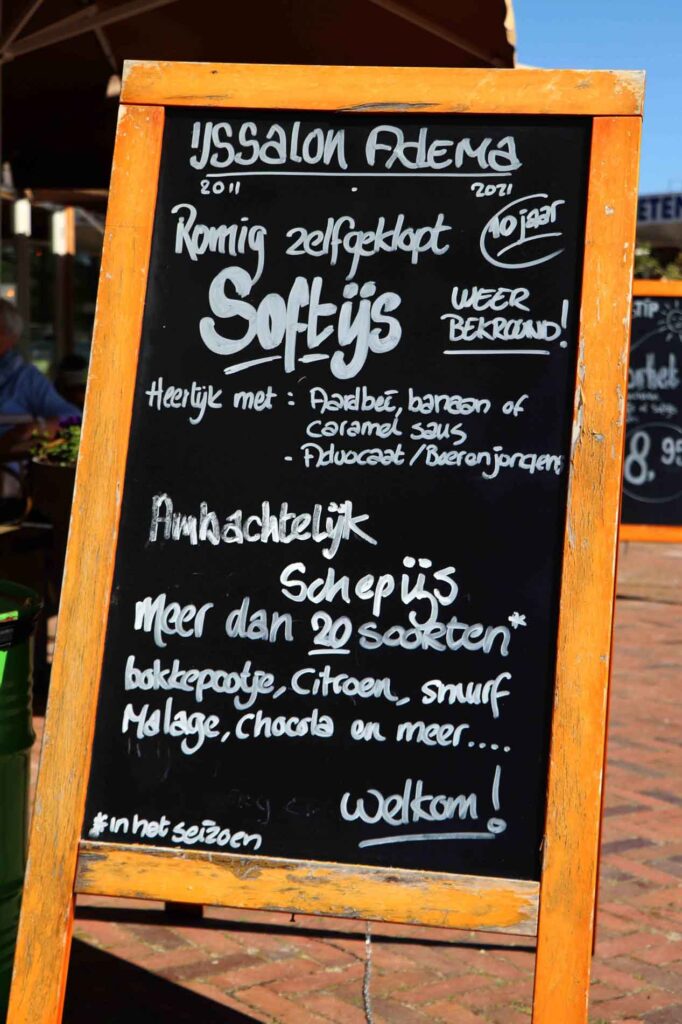 IJSSALON ADEMA
2011 - 2021
10 jaar
Romig zelfgeklopt
Softijs
WEER
BEKROOND!
Heerlijk met : Aardbei, banaan of
caramel saus
- Advocaat/Boerenjongens
Ambachtelijk
Schepijs
Meer dan 20 soorten*
bokkepootje, Citroen, smurf
Malaga, Chocola en meer.....
Welkom!
*in het seizoen
ETEN
TIP
8,95